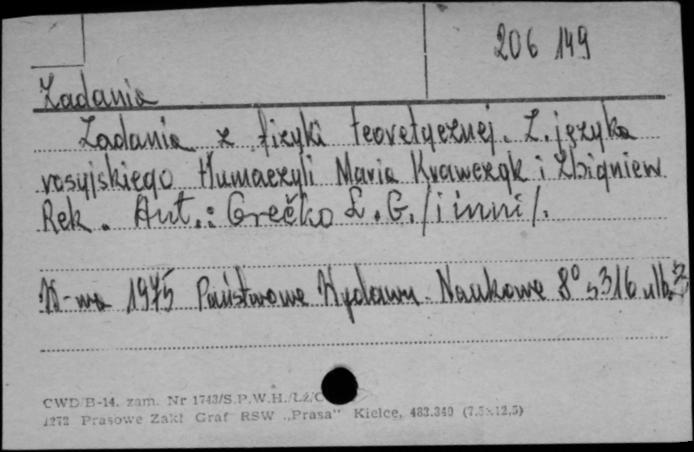 206 149
Zadania
Zadania z fizyki teoretycznej. Z języka
rosyjskiego tłumaczyli Maria Krawczyk i Zbigniew
Rek. Aut.: Grečko L. G. /i inni/.
W-wa 1975 Państwowe Wydawn. Naukowe 8° s 316 nlb. 3
CWD/B-14. zam. Nr 1743/S.P.W.H./Łż/
1272 Prasowe Zakł Graf RSW „Prasa" Kielce, 483.340 (7.5×12,5)